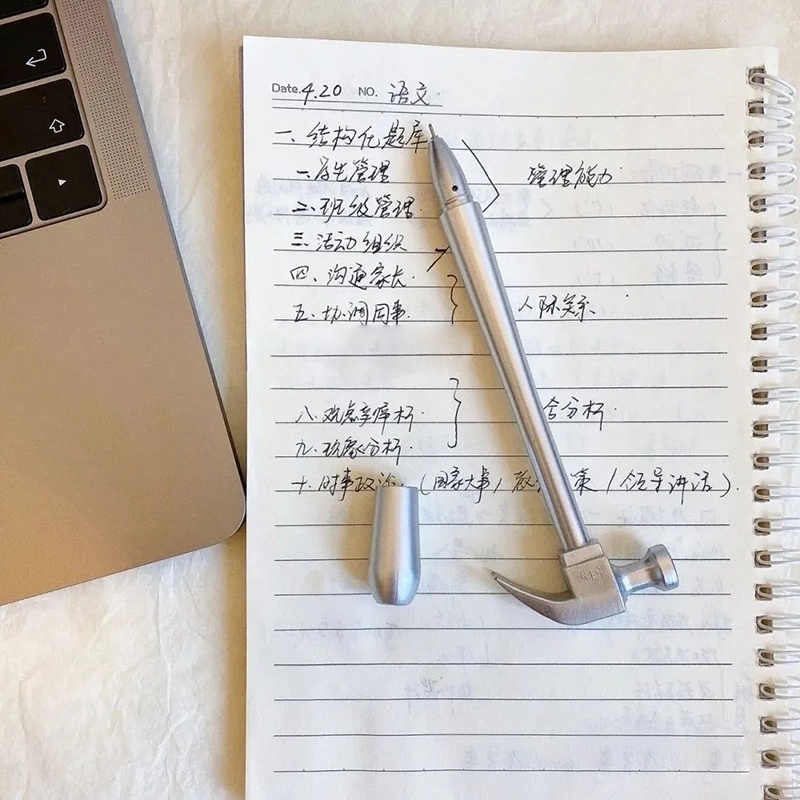 Date. 4.20 NO. 语文
一、结构化题库
一、学生管理
二、班级管理 管理能力
三、活动组织
四、沟通家长
五、协调同事 人际关系
八、观点辛库析 合分析
九、现象分析
十、时事政治 (国家大事/教 策/领导讲话)